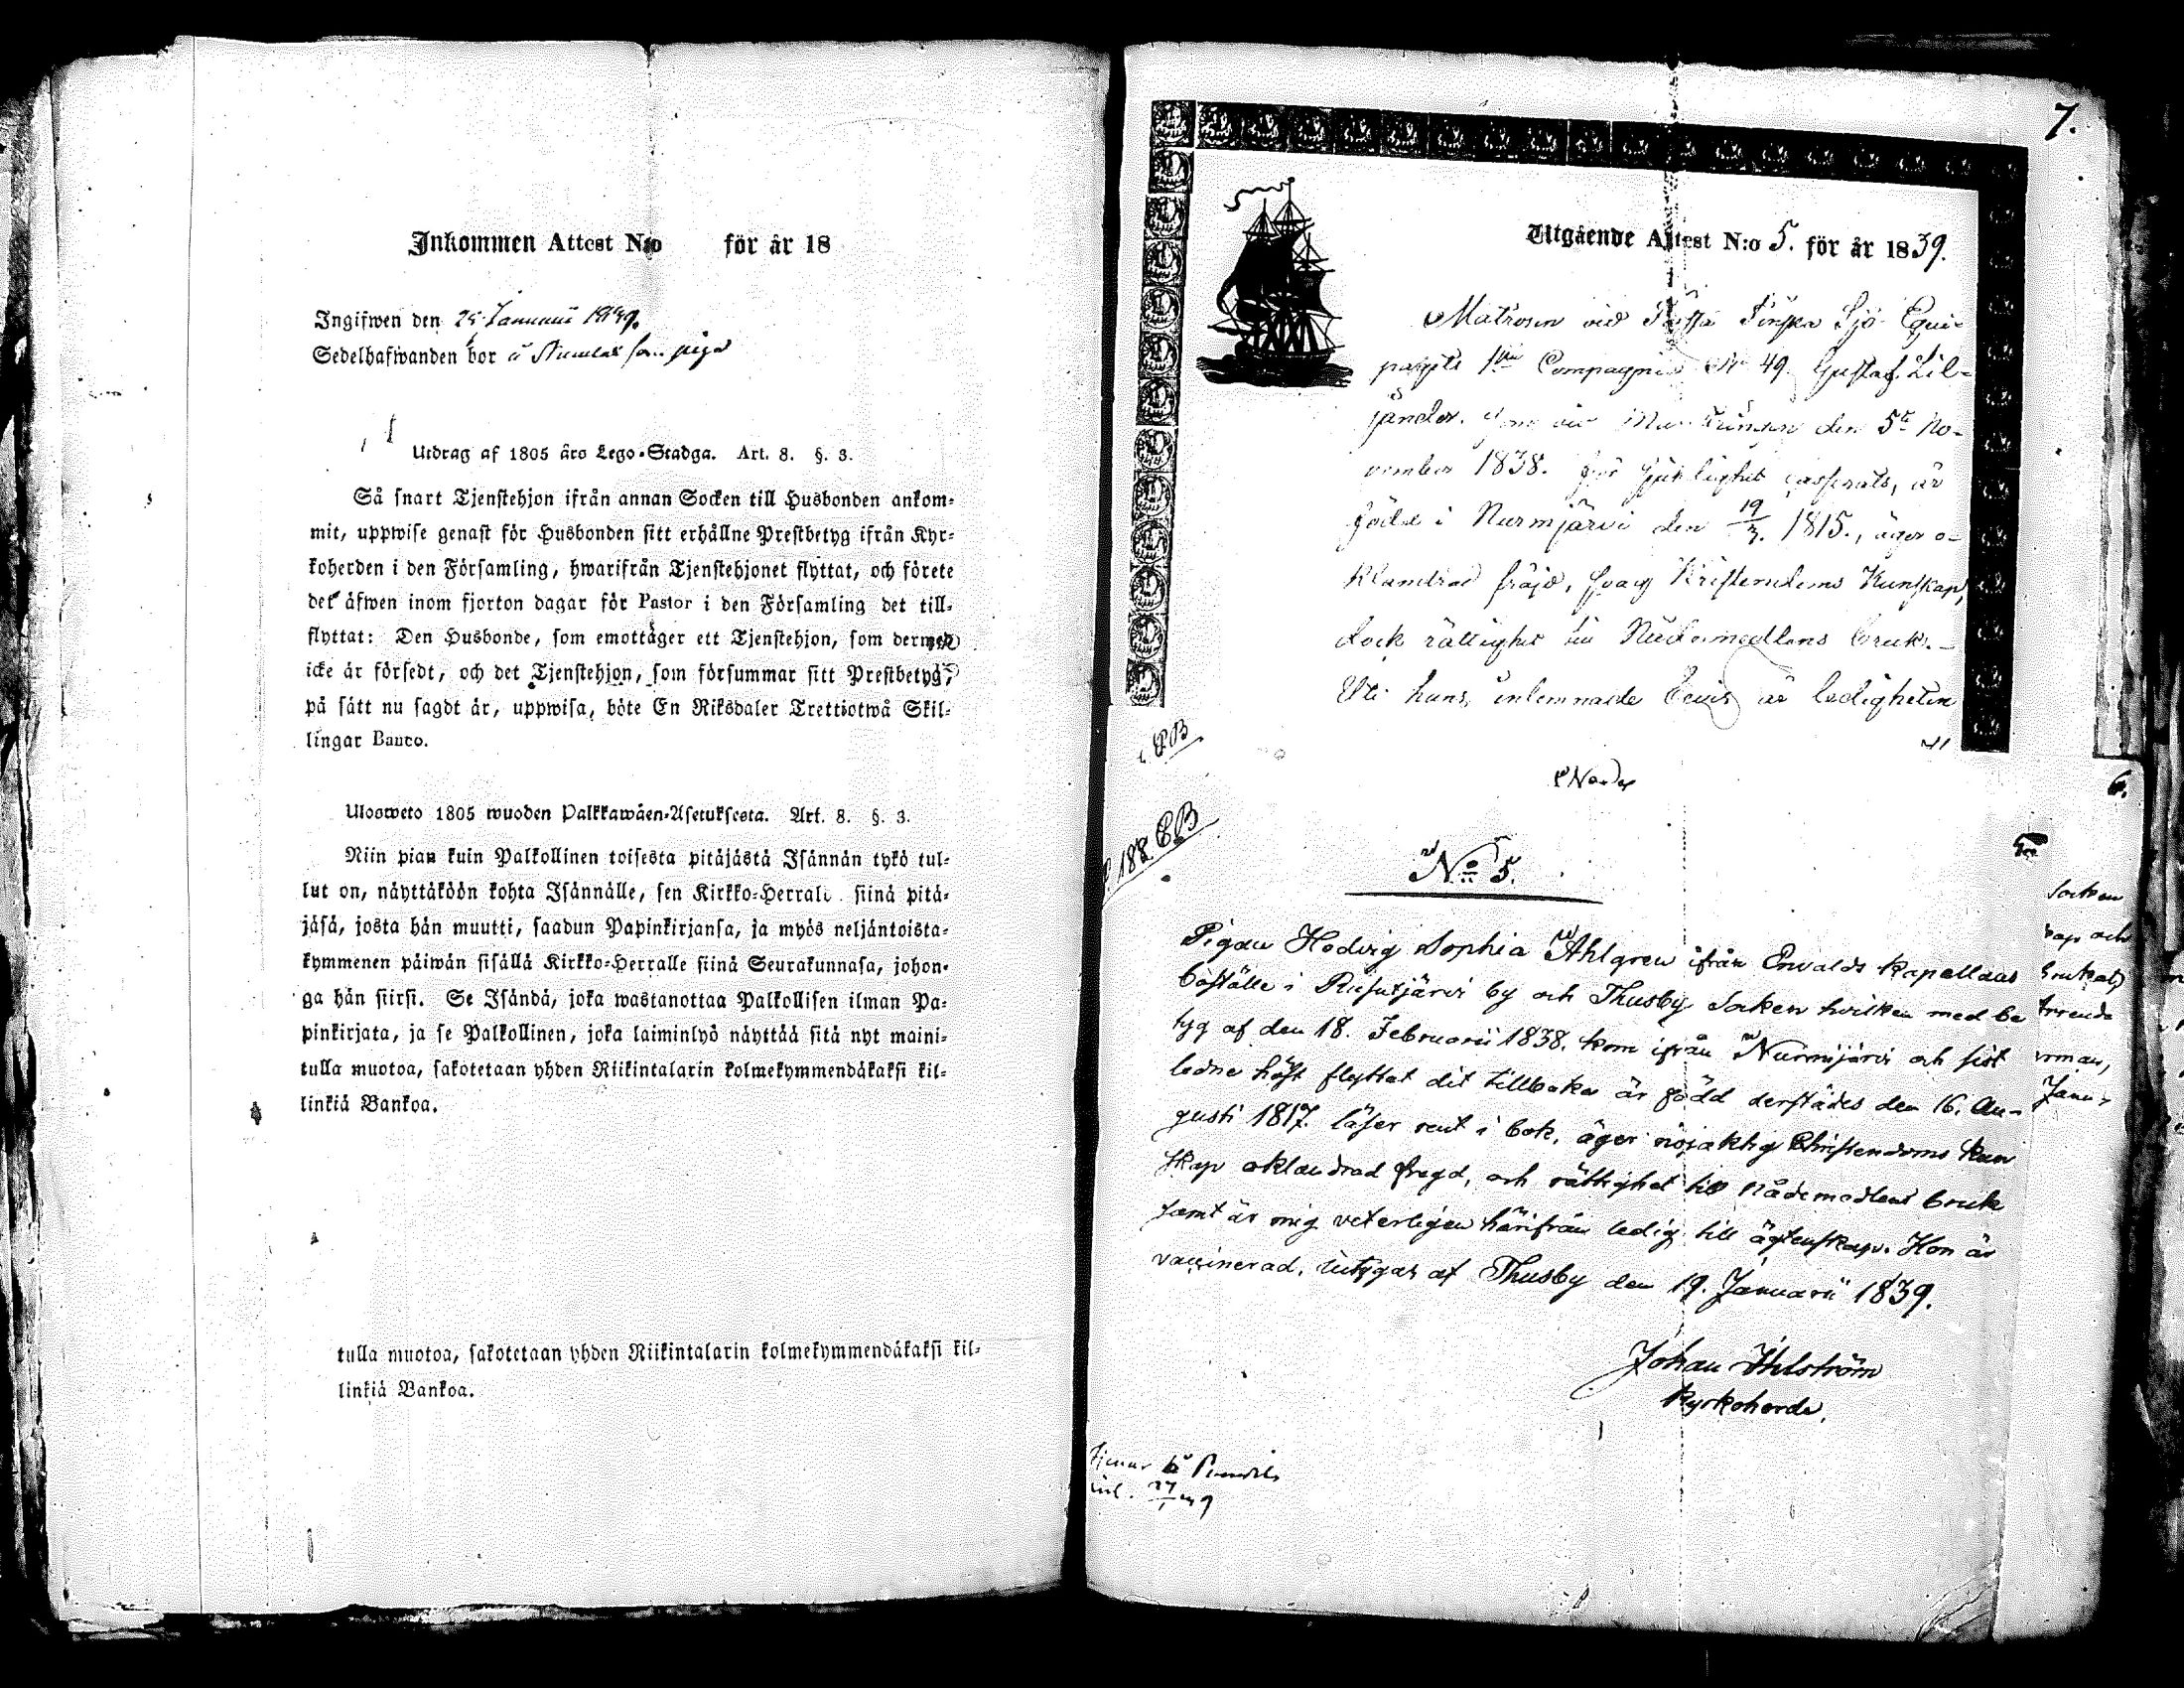 Inkommen Attest N:o för år 18
Ingifwen den 25 Januarii 1839.
Sedelhafwanden bor å som piga
Utdrag af 1805 års Lego-Stadga. Art. 8. §. 3.
Så snart Tjenstehjon ifrån annan Socken till Husbonden ankom-
mit, uppwise genast för Husbonden sitt erhållne Prestbetyg ifrån Kyr-
koherden i den Församling, hwarifrån Tjenstehjonet flyttat, och förete
det äfwen inom fjorton dagar för Pastor i den Församling det till-
flyttat: Den Husbonde, som emottager ett Tjenstehjon, som dermed
icke är försedt, och det Tjenstehjon, som försummar sitt Prestbetyg,
på sätt nu sagdt är, uppwisa, böte En Riksdaler Trettiotwå Skil-
lingar Banco.
Ulosweto 1805 wuoden Palkkawäen-Asetuksesta. Art. 8. §. 3.
Niin pian kuin Palkollinen toisesta pitäjästä Isännän tykö tul-
lut on, näyttäköön kohta Isännälle, sen Kirkko-Herralt siinä pitä-
jäsä, josta hän muutti, saadun Papinkirjansa, ja myös neljäntoista-
kymmenen päiwän sisällä Kirkko-Herralle siinä Seurakunnasa, johon-
ga hän siirsi. Se Isändä, joka wastanottaa Palkollisen ilman Pa-
pinkirjata, ja se Palkollinen, joka laiminlyö näyttää sitä nyt maini-
tulla muotoa, sakotetaan yhden Riikintalarin kolmekymmendäkaksi kil-
linkiä Bankoa.
tulla muotoa, sakotetaan yhden Riikintalarin kolmekymmendäkaksi kil-
linkiä Bankoa.
7.
Utgående Attest N:o 5. för år 1839.
Matrosen vid Finska Sjö-Equi-
pagets 1sta Compagnie No 49 Gustaf Lil-
jander, som vid den 5te No-
vember 1838. för sjuklighet casserats, är
född i Nurmjärvi den 19/3. 1815., äger o-
klandrad fräjd, svag Kristendoms Kunskap,
dock rättighet till Nådemedlens bruk.
Uti hans inlemnade bevis är ledigheten
EB
188 EB
No 5.
Pigan Hedvig Sophia Ahlgren ifrån Envalds Kapellans
boställe i Rusutjärvi by och Thusby Socken hvilken med be
tyg af den 18. Februarii 1838. kom ifrån Nurmijärvi och sist
ledne höst flyttat dit tillbaka är född derstädes den 16. Au-
gusti 1817. läser rent i bok, äger nöjaktig Christendoms kun
skap oklandrad fregd, och rättighet till nådemedlens bruk
samt är mig veterligen härifrån ledig till ägtenskap. Hon är
vaccinerad, intygas af Thusby den 19. Januarii 1839.
Johan Ahlström
Kyrkoherde.
6.
Socken
kap och
bruk al
Janu-